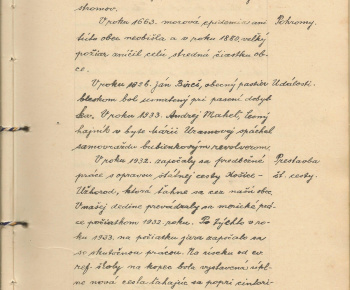 stromov.
V roku 1663. morová epidemia ani Pohromy.
túto obec neobišla a v roku 1880. veľký
požiar zničil celú strednú čiastku ob-
ce.
V roku 1926. Ján obecný pastier Události.
bleskom bol usmrtený pri pasení dobyt
ka. V roku 1933. Andrej Mahel, lesný
hájnik v byte háïře Uramovej spáchal
samovraždu bubienkovým revolverom.
V roku 1932. započaly sa predbežné Prestavba
práce s opravou štátnej cesty Košice- št. cesty.
Užhorod, ktorá tiahne sa cez našu obec.
V našej dedine prevádzaly sa meračské prá-
ce počiatkom 1932. roku. Po týchto v ro-
ku 1933. na počiatku jara započalo sa
so skutočnou prácou. Na úseku od ev.
ref. školy na kopec bola vystavená úpl-
ne nová cesta ťahajúc sa popri cintorí-